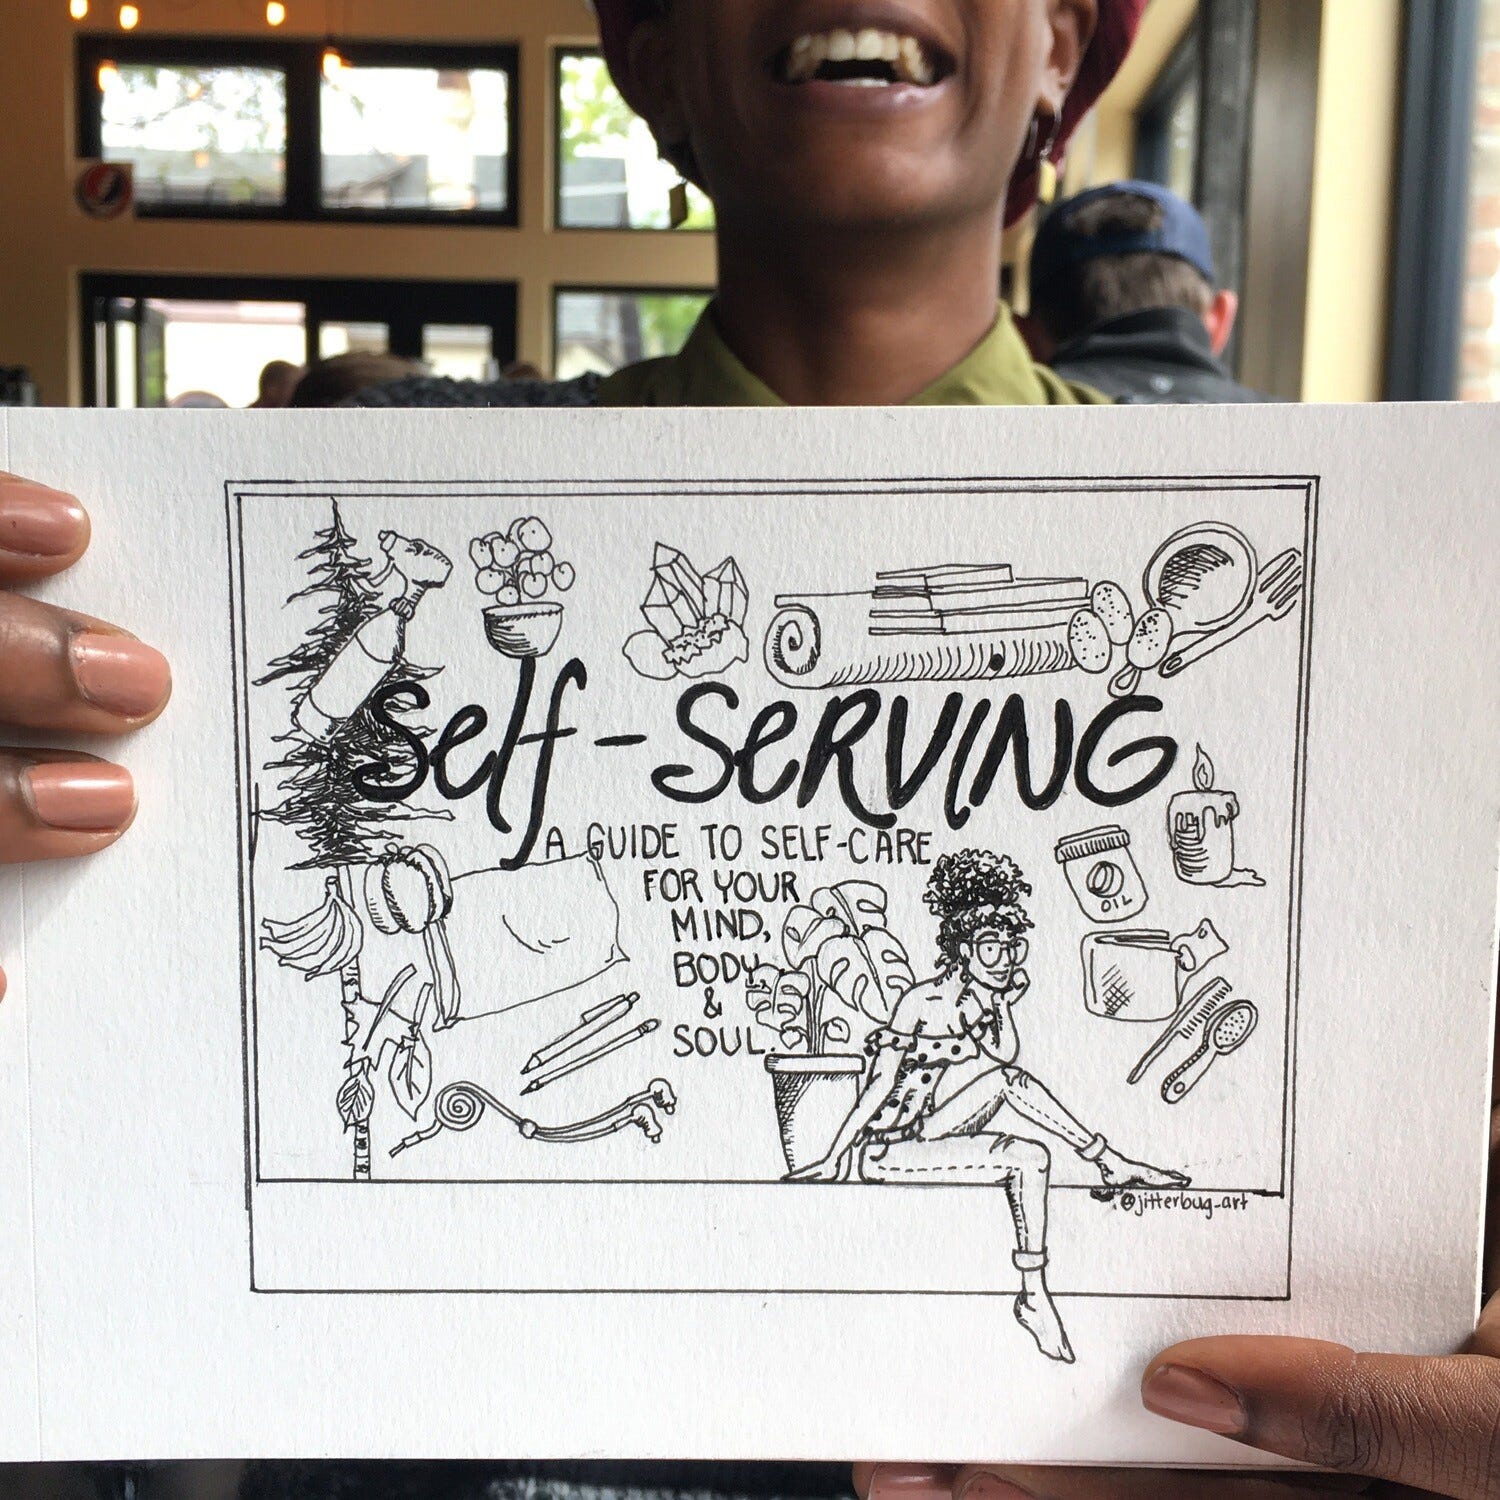 Self-SERVING
A GUIDE TO SELF-CARE
FOR YOUR
MIND,
BODY
&
SOUL.
OIL
@jitterbug_art